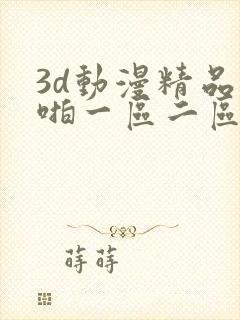 3d動漫精品
啪一區二區
蒔蒔